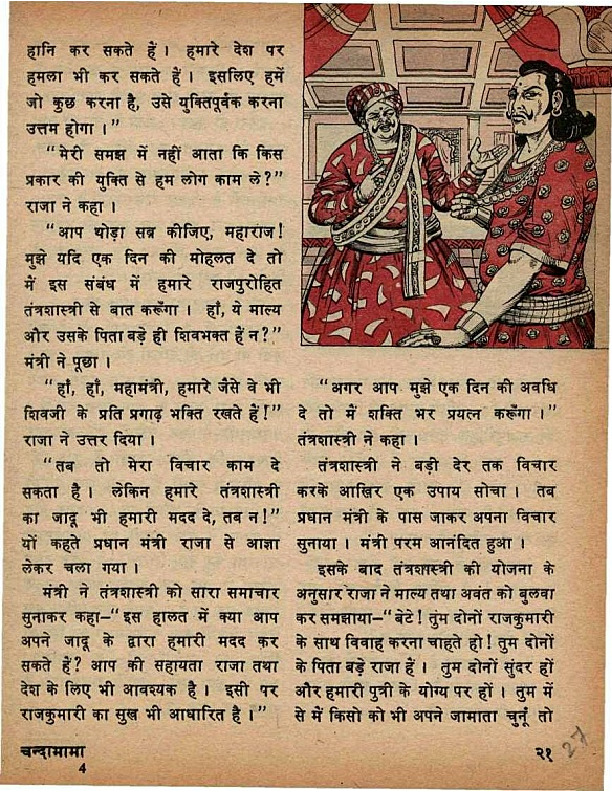 हानि कर सकते हैं। हमारे देश पर
हमला भी कर सकते हैं। इसलिए हमें
जो कुछ करना है, उसे युक्तिपूर्वक करना
उत्तम होगा।”
“मेरी समझ में नहीं आता कि किस
प्रकार की युक्ति से हम लोग काम ले?”
राजा ने कहा।
“आप थोड़ा सब्र कीजिए, महाराज!
मुझे यदि एक दिन की मोहलत दे तो
मैं इस संबंध में हमारे राजपुरोहित
तंत्रशास्त्री से बात करूँगा। हाँ, ये माल्य
और उसके पिता बड़े ही शिवभक्त हैं न?”
मंत्री ने पूछा।
“हाँ, हाँ, महामंत्री, हमारे जैसे वे भी
शिवजी के प्रति प्रगाढ़ भक्ति रखते हैं!”
राजा ने उत्तर दिया।
“तब तो मेरा विचार काम दे
सकता है। लेकिन हमारे तंत्रशास्त्री
का जादू भी हमारी मदद दे, तब न!”
यों कहते प्रधान मंत्री राजा से आज्ञा
लेकर चला गया।
मंत्री ने तंत्रशास्त्री को सारा समाचार
सुनाकर कहा–“इस हालत में क्या आप
अपने जादू के द्वारा हमारी मदद कर
सकते हैं? आप की सहायता राजा तथा
देश के लिए भी आवश्यक है। इसी पर
राजकुमारी का सुख भी आधारित है।”
“अगर आप मुझे एक दिन की अवधि
दे तो मैं शक्ति भर प्रयत्न करूँगा।”
तंत्रशास्त्री ने कहा।
तंत्रशास्त्री ने बड़ी देर तक विचार
करके आखिर एक उपाय सोचा। तब
प्रधान मंत्री के पास जाकर अपना विचार
सुनाया। मंत्री परम आनंदित हुआ।
इसके बाद तंत्रशास्त्री की योजना के
अनुसार राजा ने माल्य तथा अवंत को बुलवा
कर समझाया–“बेटे! तुम दोनों राजकुमारी
के साथ विवाह करना चाहते हो! तुम दोनों
के पिता बड़े राजा हैं। तुम दोनों सुंदर हों
और हमारी पुत्री के योग्य पर हों। तुम में
से मैं किसी को भी अपने जामाता चुनूँ तो
चन्दामामा
4
२१
27